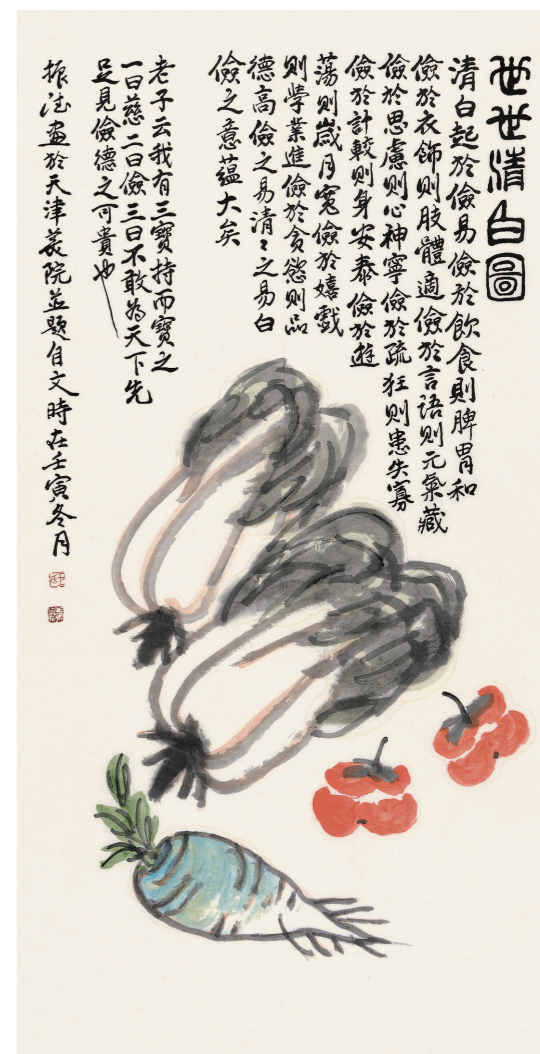 世世清白圖
清白起於儉易儉於飲食則脾胃和
儉於衣飾則肢體適儉於言語則元氣藏
儉於思慮則心神寧儉於疏狂則患失寡
儉於計較則身安泰儉於遊
蕩則歲月寬儉於嬉戲
則學業進儉於貪慾則品
德高儉之易清清之易白
儉之意蘊大矣
老子云我有三寶持而寶之
一曰慈二曰儉三曰不敢為天下先
足見儉德之可貴也
振 畫於天津美院並題自文時在壬寅冬月